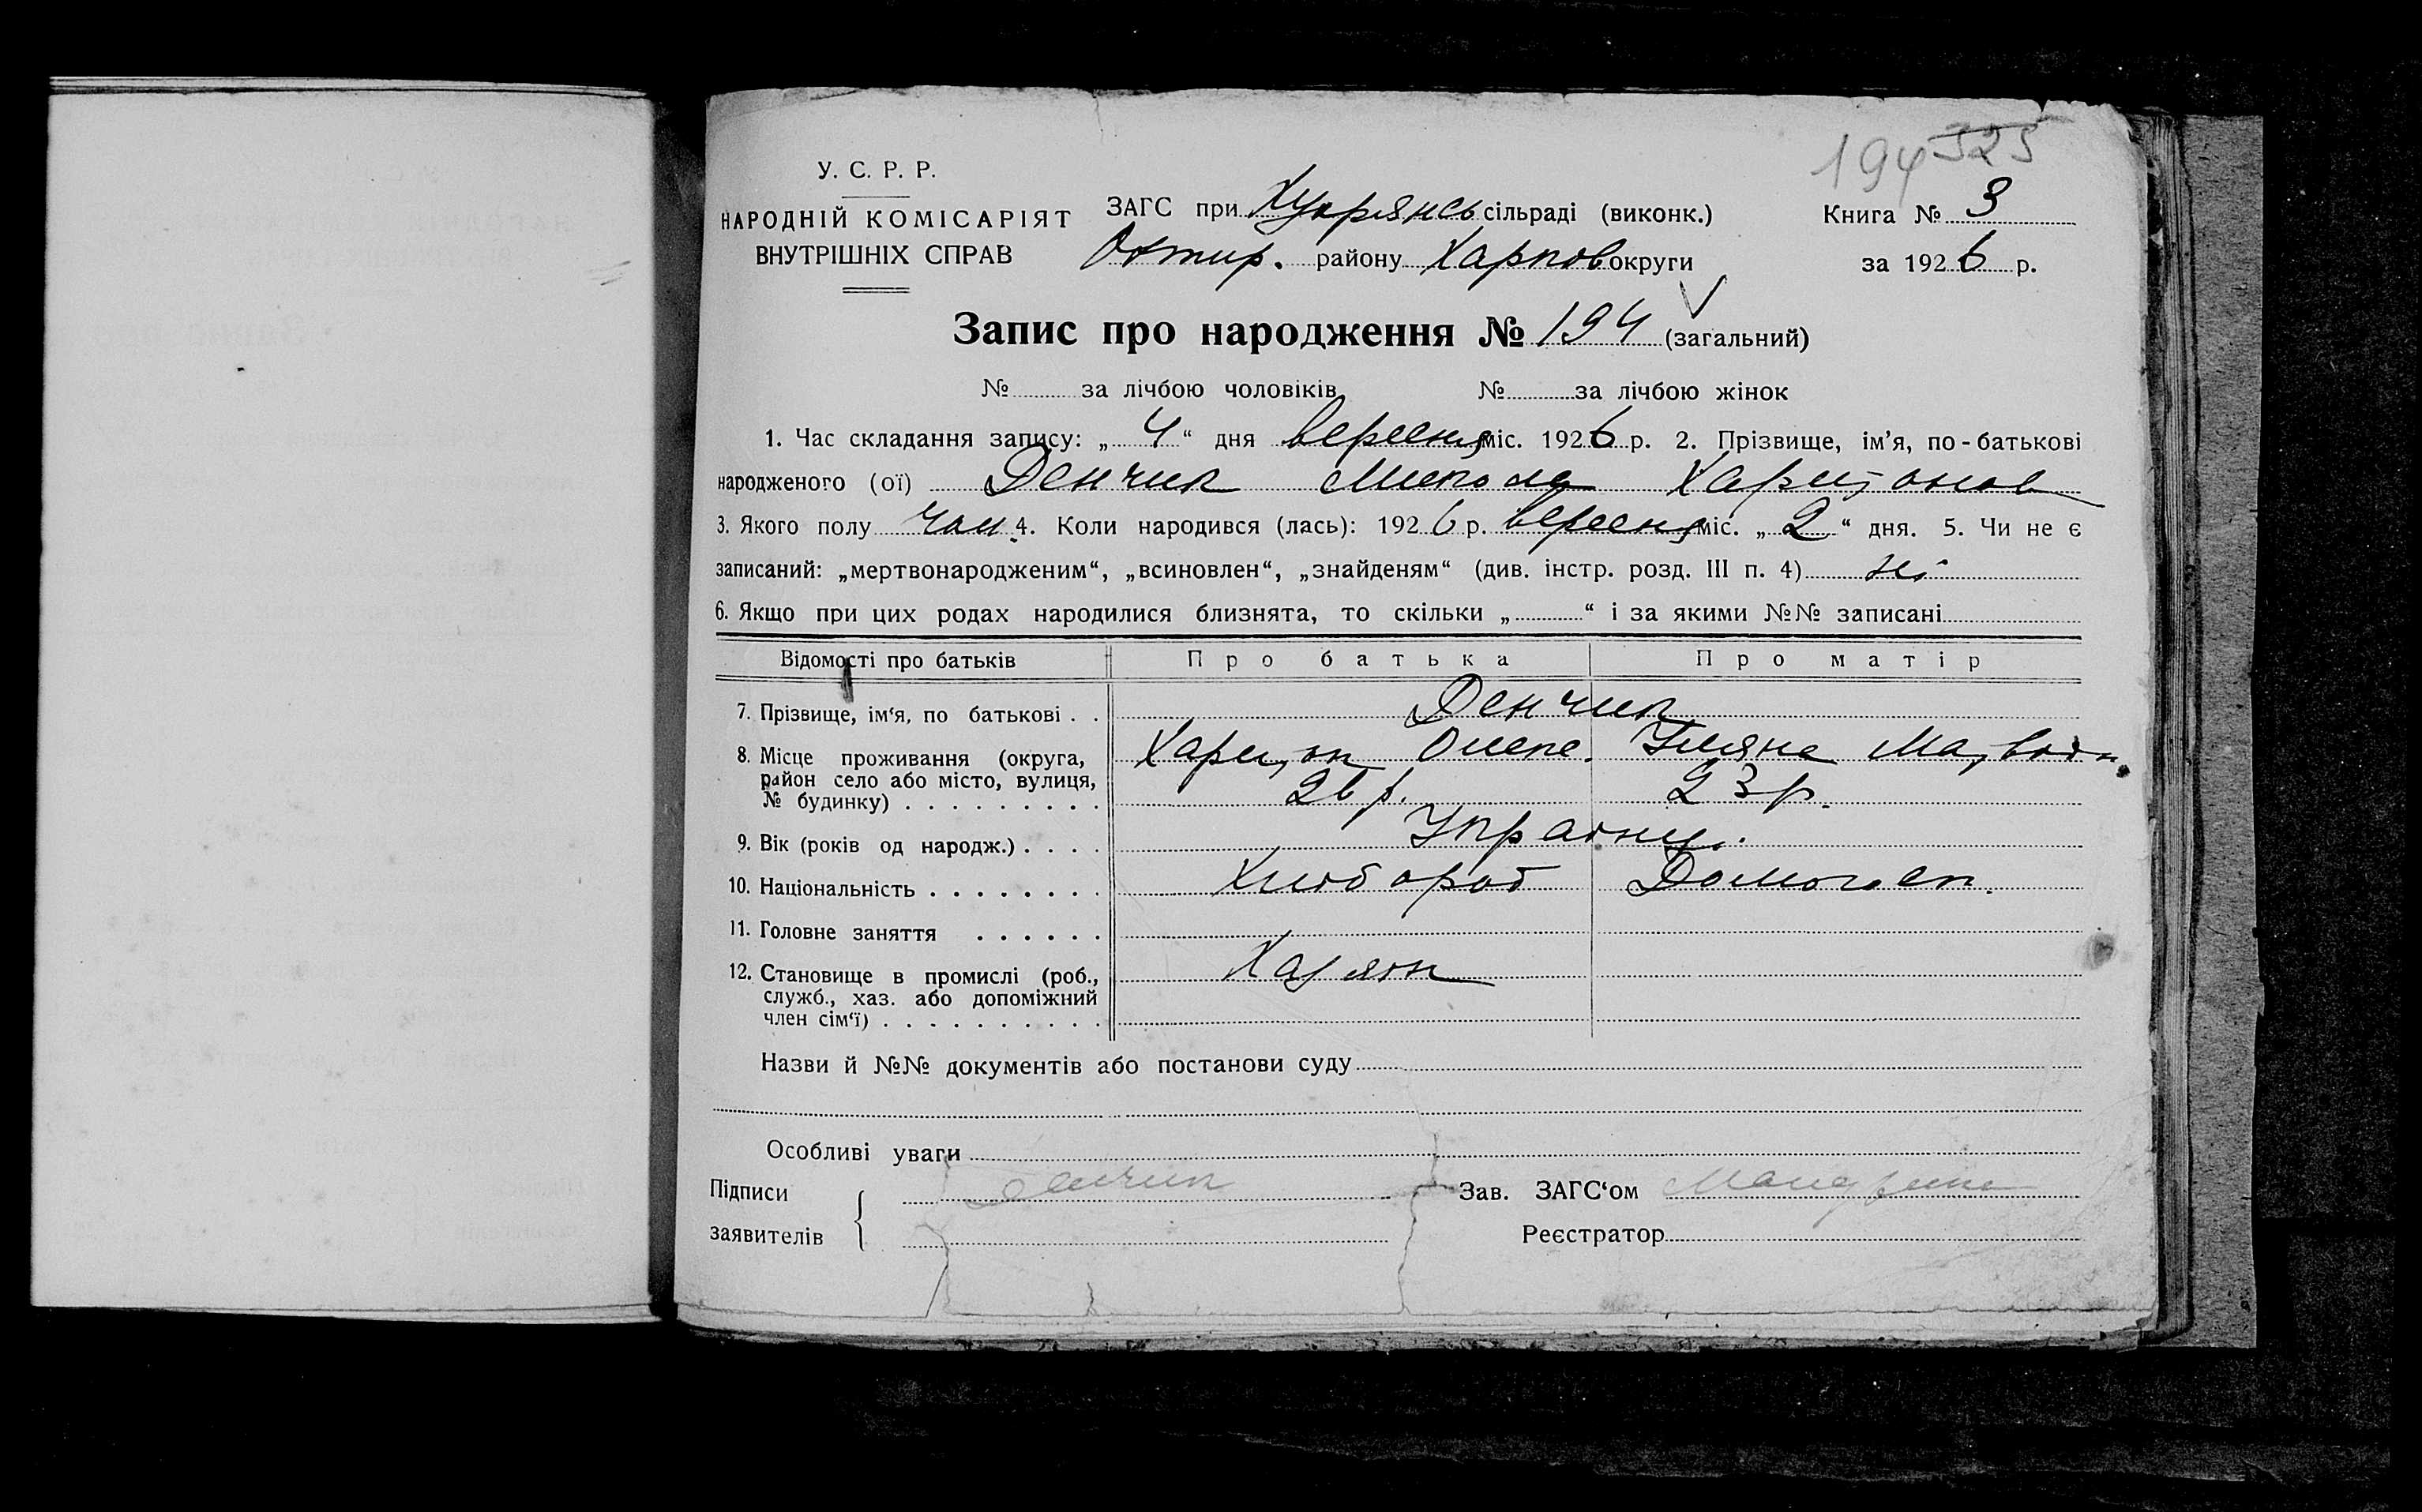 194 325
У. С. Р. Р.
НАРОДНІЙ КОМІСАРІЯТ
ВНУТРІШНІХ СПРАВ
ЗАГС при Хухрянсь сільраді (виконк.)
Охтир. району Харков округи
Книга № 3
за 1926 р.
Запис про народження № 194 (загальний)
№ за лічбою чоловіків № за лічбою жінок
1. Час складання запису: „ 4 “ дня вересня міс. 1926 р. 2. Прізвище, ім’я, по-батькові
народженого (ої) Денчик Микола Харитонов
3. Якого полу чол. 4. Коли народився (лась): 1926 р. вересня міс. „ 2 “ дня. 5. Чи не є
записаний: „мертвонародженим“, „всиновлен“, „знайденям“ (див. інстр. розд. III п. 4) ні
6. Якщо при цих родах народилися близнята, то скільки „ “ і за якими №№ записані
Відомості про батьків Про батька Про матір
7. Прізвище, ім‘я, по батькові . . Денчик
8. Місце проживання (округа, Харитон Олекс. Уляна
район село або місто, вулиця,
№ будинку) . . . . . . . . . 26 р. 23 р.
9. Вік (років од народж.) . . . . Україн
10. Національність . . . . . . . . Хлібороб Домогосп.
11. Головне заняття . . . . . .
12. Становище в промислі (роб., Хазяїн
служб., хаз. або допоміжний
член сім‘ї) . . . . . . . . . .
Назви й №№ документів або постанови суду
Особливі уваги
Підписи Денчик Зав. ЗАГС‘ом
заявителів Реєстратор